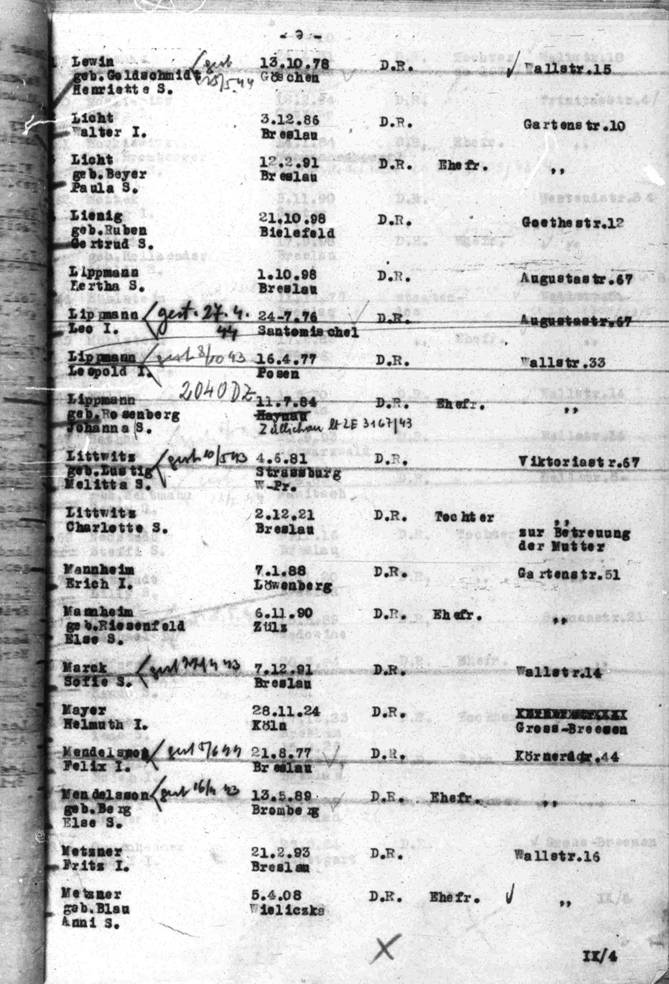 - 9 -
Lewin gest 13.10.78 D.R. Wallstr.15
geb.Goldschmidt 25/5.44 Göschen
Henriette S.
Licht 3.12.86 D.R. Gartenstr.10
Walter I. Breslau
Licht 12.2.91 D.R. Ehefr. ,,
geb.Beyer Breslau
Paula S.
Lienig 21.10.98 D.R. Goethestr.12
geb.Ruben Bielefeld
Gertrud S.
Lippmann 1.10.98 D.R. Augustastr.67
Hertha S. Breslau
Lippmann gest. 27.4. 24.7.76 D.R. Augustastr.67
Leo I. 44 Santomischel
Lippmann gest 43 16.4.77 D.R. Wallstr.33
Leopold I. Posen
2040DZ
Lippmann 11.7.84 D.R. Ehefr. ,,
geb.Rosenberg Haynau
Johanna S. Züllichau lt ZE 3167/43
Littwitz gest 10/5 43 4.6.81 D.R. Viktoriastr.67
geb.Lustig Strassburg
Melitta S. W-Pr.
Littwitz 2.12.21 D.R. Tochter ,,
Charlotte S. Breslau zur Betreuung
der Mutter
Mannheim 7.1.88 D.R. Gartenstr.51
Erich I. Löwenberg
Mannheim 6.11.90 D.R. Ehefr. ,,
geb.Riesenfeld Zülz
Else S.
Marck gest 43 7.12.91 D.R. Wallstr.14
Sofie S. Breslau
Mayer 28.11.24 D.R.
Helmuth I. Köln Gross-Breesen
Mendelsson gest 44 21.8.77 D.R. Körnerstr.44
Felix I. Breslau
Mendelsson gest 43 13.5.89 D.R. Ehefr. ,,
geb.Berg Bromberg
Else S.
Metzner 21.2.93 D.R. Wallstr.16
Fritz I. Breslau
Metzner 5.4.08 D.R. Ehefr. ,,
geb.Blau Wieliczka
Anni S.
IX/4